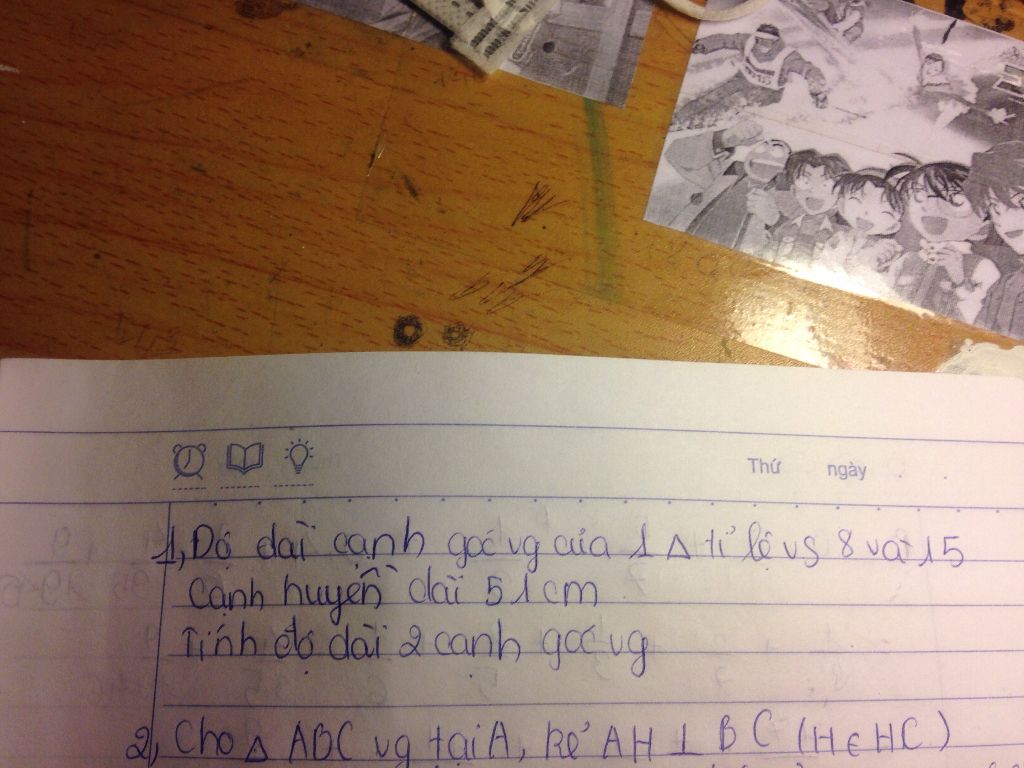 Thứ ngày
1, Độ dài cạnh góc vg của 1 Δ tỉ lệ vs 8 và 15
Cạnh huyền dài 51cm
Tính độ dài 2 cạnh góc vg
2, Cho Δ ABC vg tại A, kẻ AH ⊥ BC (H ∈ HC)